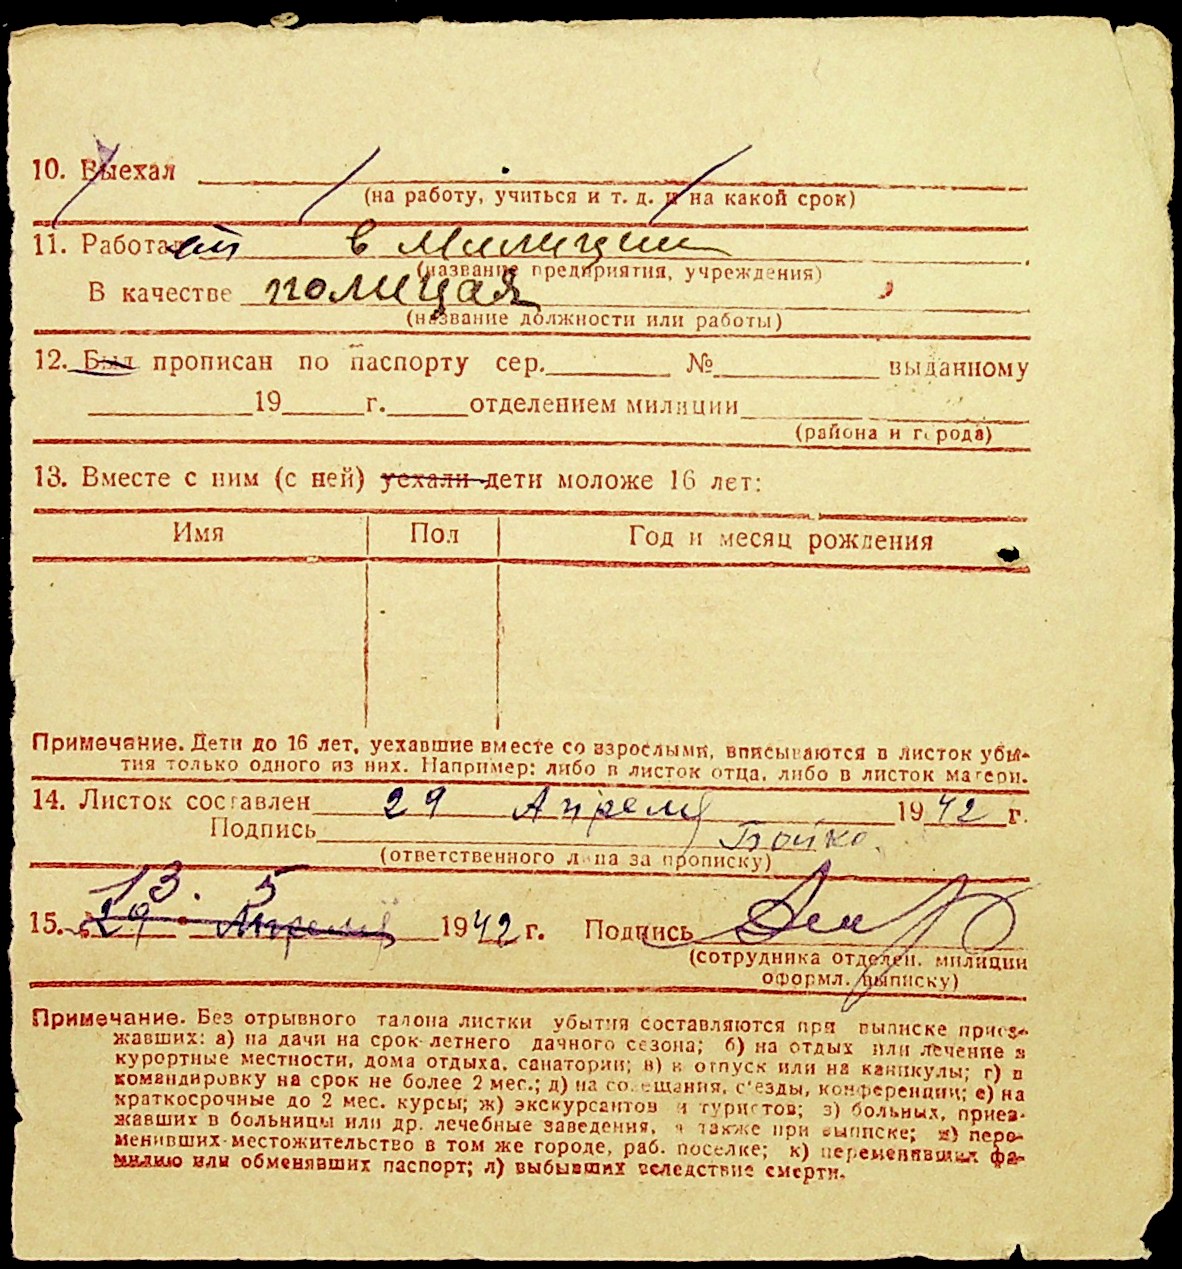 10. Выехал
(на работу, учиться и т. д. и на какой срок)
11. Работает в Милиции
(название предприятия, учреждения)
В качестве полицая
(название должности или работы)
12. Был прописан по паспорту сер. № выданному
19 г. отделением милиции
(района и города)
13. Вместе с ним (с ней) уехали дети моложе 16 лет:
Имя Пол Год и месяц рождения
Примечание. Дети до 16 лет, уехавшие вместе со взрослыми, вписываются в листок убы-
тия только одного из них. Например: либо в листок отца, либо в листок матери.
14. Листок составлен 29 Апреля 1942 г.
Подпись Бойко.
(ответственного лица за прописку)
13. 5
15. 29 Апреля 1942 г. Подпись
(сотрудника отделен. милиции
оформл. выписку)
Примечание. Без отрывного талона листки убытия составляются при выписке приез-
жавших: а) на дачи на срок летнего дачного сезона; б) на отдых или лечение в
курортные местности, дома отдыха, санатории; в) в отпуск или на каникулы; г) в
командировку на срок не более 2 мес.; д) на совещания, с'езды, конференции; е) на
краткосрочные до 2 мес. курсы; ж) экскурсантов и туристов; з) больных, приез-
жавших в больницы или др. лечебные заведения, а также при выписке; и) пере-
менивших местожительство в том же городе, раб. поселке; к) переменивших фа-
милию или обменявших паспорт; л) выбывших вследствие смерти.